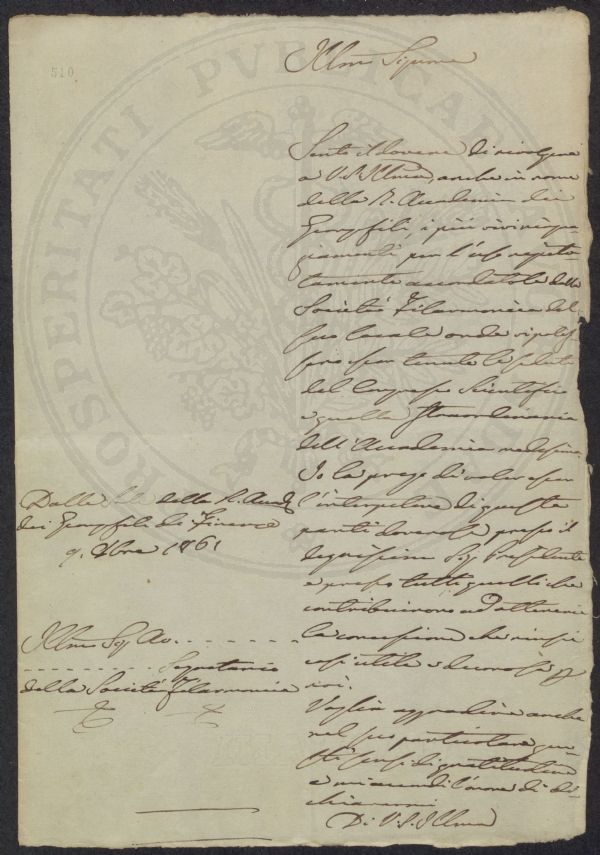 510
Illmo Signore
Sento il dovere di rivolgere
a V. S. Illma, anche in nome
della R. Accademia dei
Georgofili, i più vivi ringra
ziamenti per l'uso repetu
tamente accordatole dalla
Società Filarmonica del
suo locale onde vi potes
sero esser tenute le sedute
del Congresso Scientifico
e quella straordinaria
dell'Accademia medesima.
Io la prego di voler esser
l'interpetre di questa
parti doverose presso il
degnissimo Sig. Presidente
e presso tutti quelli che
contribuirono ad ottenere
la concessione che riuscì
così utile e decorosa per
noi.
Voglia aggradire anche
nel suo particolare que
sti sensi di gratitudine
e mi accordi l'onore di di
chiararmi
Di V. S. Illma
Dalle Sale della R. Accad.
dei Georgofili di Firenze
9. Xbre 1861
Illmo Sig. Av.
Segretario
della Società Filarmonica
PROSPERITATI PUBLICAE